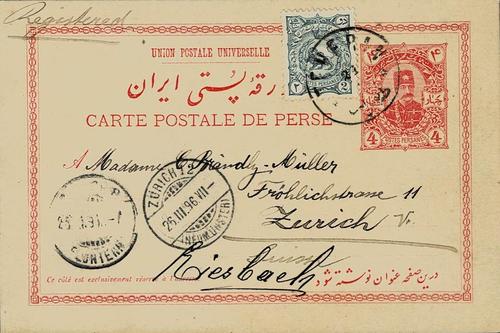 Registered
UNION POSTALE UNIVERSELLE
ورقه پستی ایران
CARTE POSTALE DE PERSE
2 2
TEHERAN
4 4
POSTES PERSANES
A Madame C Brändly-Müller
Fröhlichstrasse 11
Zurich V.
Riesbach
Suisse
ZÜRICH 12
26.III.96.VII-
(NEUMÜNSTER)
FLUNTERN
Ce côté est exclusivement réservé à l'adresse
درین صفحه عنوان نوشته شود